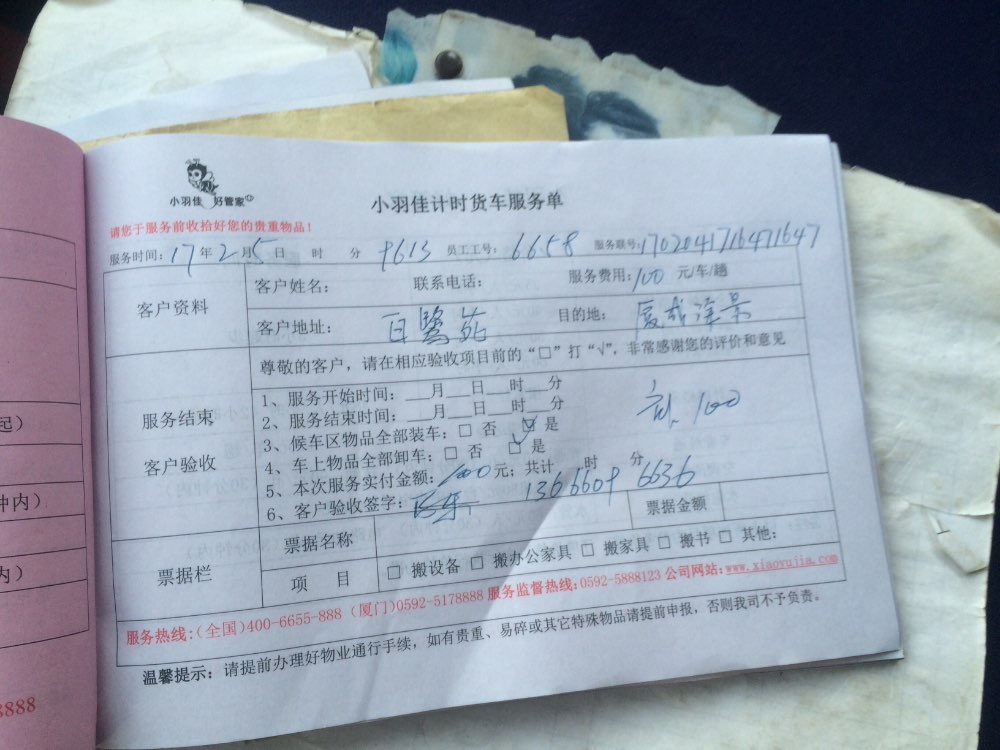 小羽佳 好管家
小羽佳计时货车服务单
请您于服务前收拾好您的贵重物品！
服务时间：17年2月5日 时 分 9613 员工工号：6658 服务联号：1702041716471647
客户资料
客户姓名： 联系电话： 服务费用：100 元/车/趟
客户地址：白鹭苑 目的地：
服务结束
客户验收
尊敬的客户，请在相应验收项目前的“□”打“√”，非常感谢您的评价和意见
1、服务开始时间：___月___日___时___分
2、服务结束时间：___月___日___时___分
3、候车区物品全部装车：□ 否 ☑ 是
4、车上物品全部卸车：□ 否 ☑ 是
100
5、本次服务实付金额：100元；共计 时 分
6、客户验收签字： 1366609 6636
票据栏
票据名称
票据金额
项 目
□ 搬设备 □ 搬办公家具 □ 搬家具 □ 搬书 □ 其他：
服务热线：（全国）400-6655-888（厦门）0592-5178888 服务监督热线：0592-5888123 公司网站：www.xiaoyujia.com
温馨提示：请提前办理好物业通行手续，如有贵重、易碎或其它特殊物品请提前申报，否则我司不予负责。
起）
钟内）
内）
8888